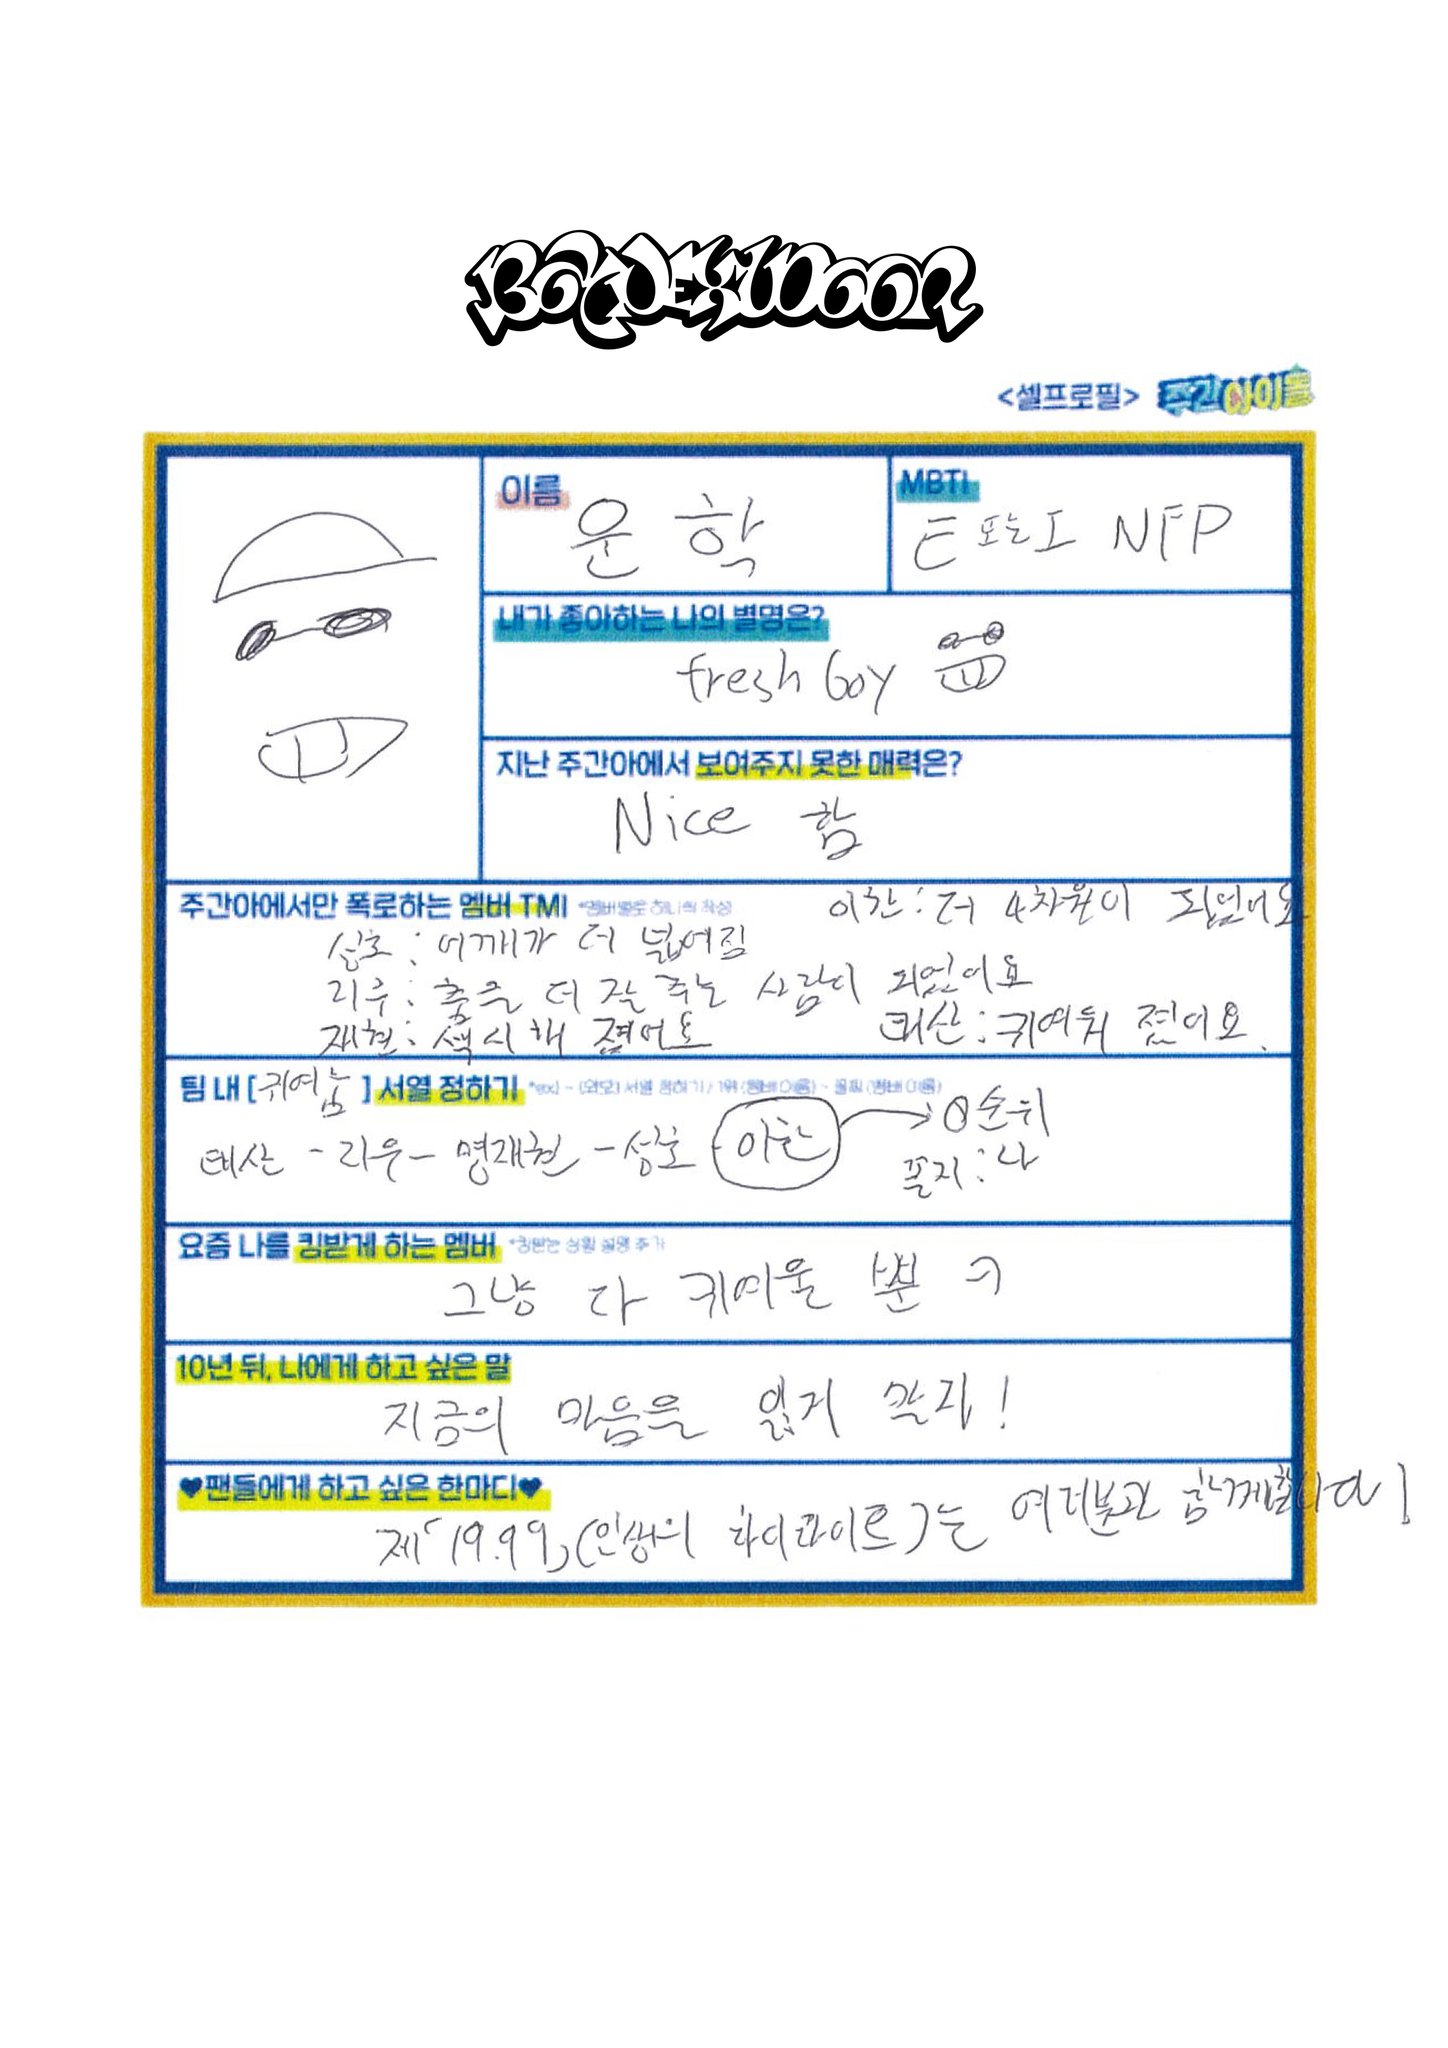 BOYNEXTDOOR
<셀프로필> 주간아이돌
이름
윤학
MBTI
E 또는 I NFP
내가 좋아하는 나의 별명은?
fresh boy
지난 주간아에서 보여주지 못한 매력은?
Nice 함
주간아에서만 폭로하는 멤버 TMI *멤버별로 하나씩 작성
이한 : 더 4차원이 되었어요
성호 : 어깨가 더 넓어짐
리우 : 춤을 더 잘 추는 사람이 되었어요
재현 : 섹시해 졌어요
태산 : 귀여워 졌어요.
팀 내 [귀여움] 서열 정하기 *ex) - (외모) 서열 정하기 / 1위 (멤버 이름) - 꼴찌 (멤버 이름)
태산 - 리우 - 명재현 - 성호 - 이한 → 0순위
꼴지 : 나
요즘 나를 킹받게 하는 멤버 *킹받는 상황 설명 추가
그냥 다 귀여울 뿐 ㅋ
10년 뒤, 나에게 하고 싶은 말
지금의 마음을 잃지 말자!
♥팬들에게 하고 싶은 한마디♥
제「19.99」(인생의 하이라이트)는 여러분과 함께합니다!